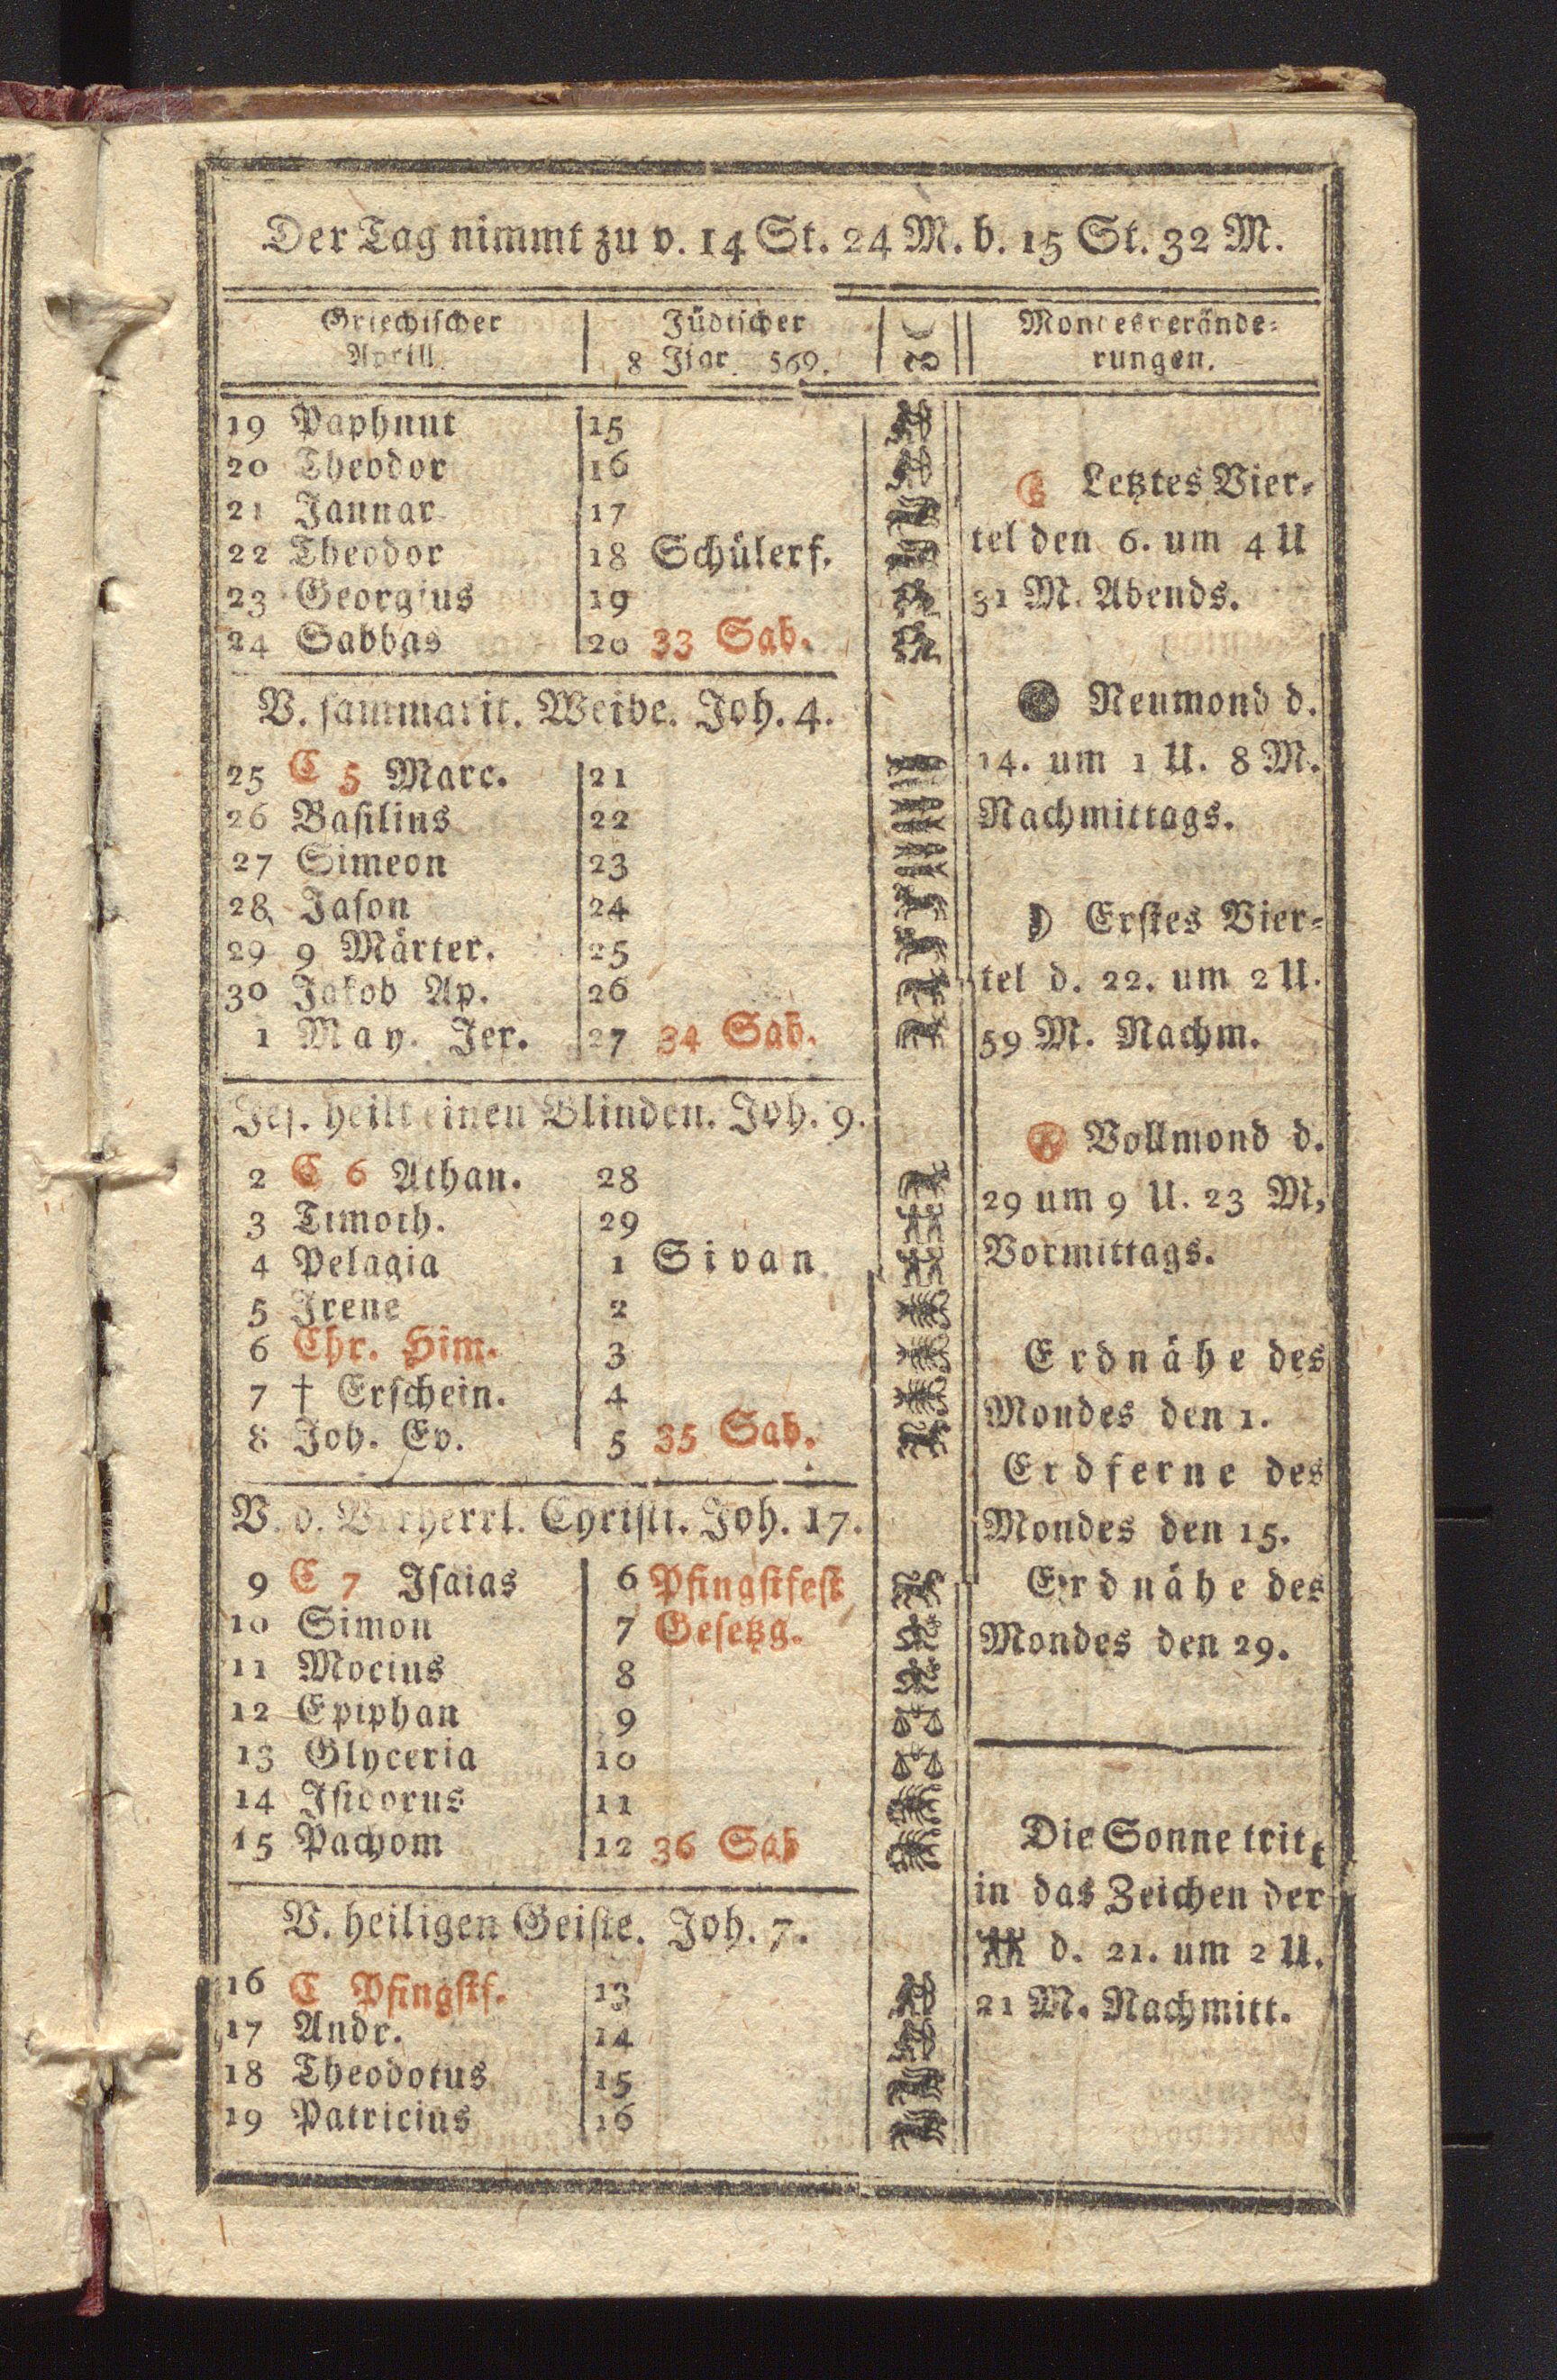 Der Tag nimmt zu v. 14 St. 24 M. b. 15 St. 32 M.
Griechischer Aprill.
Jüdischer 8 Jjar. 569.
Mondesverände-
rungen.
19 Paphnut 15
20 Theodor 16
21 Jannar 17
22 Theodor 18 Schülerf.
23 Georgius 19
24 Sabbas 20 33 Sab.
V. sammarit. Weibe. Joh. 4.
25 C 5 Marc. 21
26 Basilius 22
27 Simeon 23
28 Jason 24
29 9 Märter. 25
30 Jakob Ap. 26
1 May. Jer. 27 34 Sab.
Jes. heilt einen Blinden. Joh. 9.
2 C 6 Athan. 28
3 Timoth. 29
4 Pelagia 1 Sivan
5 Irene 2
6 Chr. Him. 3
7 † Erschein. 4
8 Joh. Ev. 5 35 Sab.
V. d. Verherrl. Christi. Joh. 17.
9 C 7 Isaias 6 Pfingstfest
10 Simon 7 Gesetzg.
11 Mocius 8
12 Epiphan 9
13 Glyceria 10
14 Isidorus 11
15 Pachom 12 36 Sab
V. heiligen Geiste. Joh. 7.
16 C Pfingstf. 13
17 Andr. 14
18 Theodotus 15
19 Patricius 16
Letztes Vier-
tel den 6. um 4 U
31 M. Abends.
Neumond d.
14. um 1 U. 8 M.
Nachmittags.
Erstes Vier-
tel d. 22. um 2 U.
59 M. Nachm.
Vollmond d.
29 um 9 U. 23 M,
Vormittags.
Erdnähe des
Mondes den 1.
Erdferne des
Mondes den 15.
Erdnähe des
Mondes den 29.
Die Sonne tritt
in das Zeichen der
♊ d. 21. um 2 U.
21 M. Nachmitt.